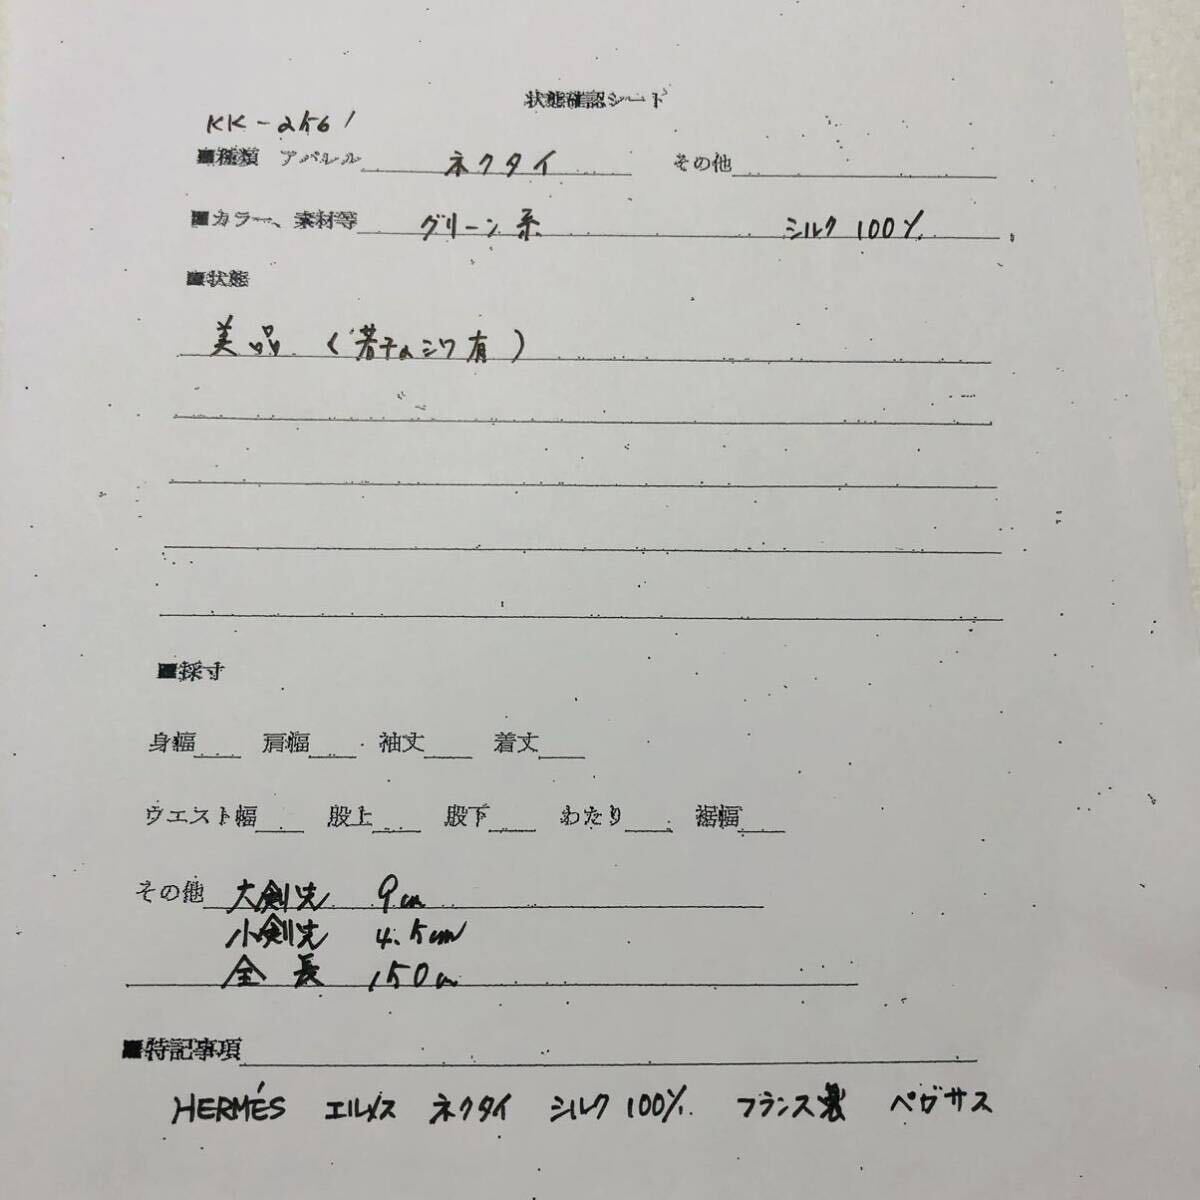 状態確認シート
KK-2561
■種類 アパレル ネクタイ その他
■カラー、素材等 グリーン系 シルク 100%
■状態
美品 (若干のシワ有)
■採寸
身幅 肩幅 袖丈 着丈
ウエスト幅 股上 股下 わたり 裾幅
その他 大剣先 9cm
小剣先 4.5cm
全長 150cm
■特記事項
HERMÉS エルメス ネクタイ シルク 100% フランス製 ペガサス